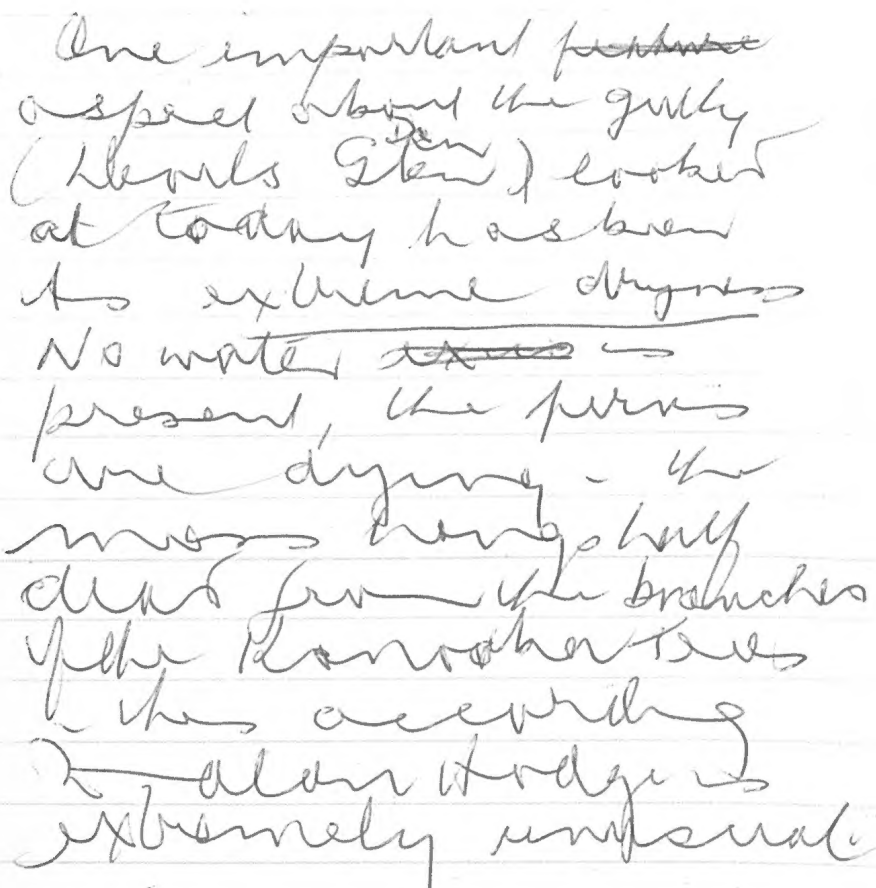 One important feature
aspect about the gully
(Devils Glen Den) looked
at today has been
its extreme dryness
No water is
present, the ferns
are dying - the
moss hangs half
dead from the branches
of the Kanooka Trees
& this according
to Alan Hodgins
extremely unusual.